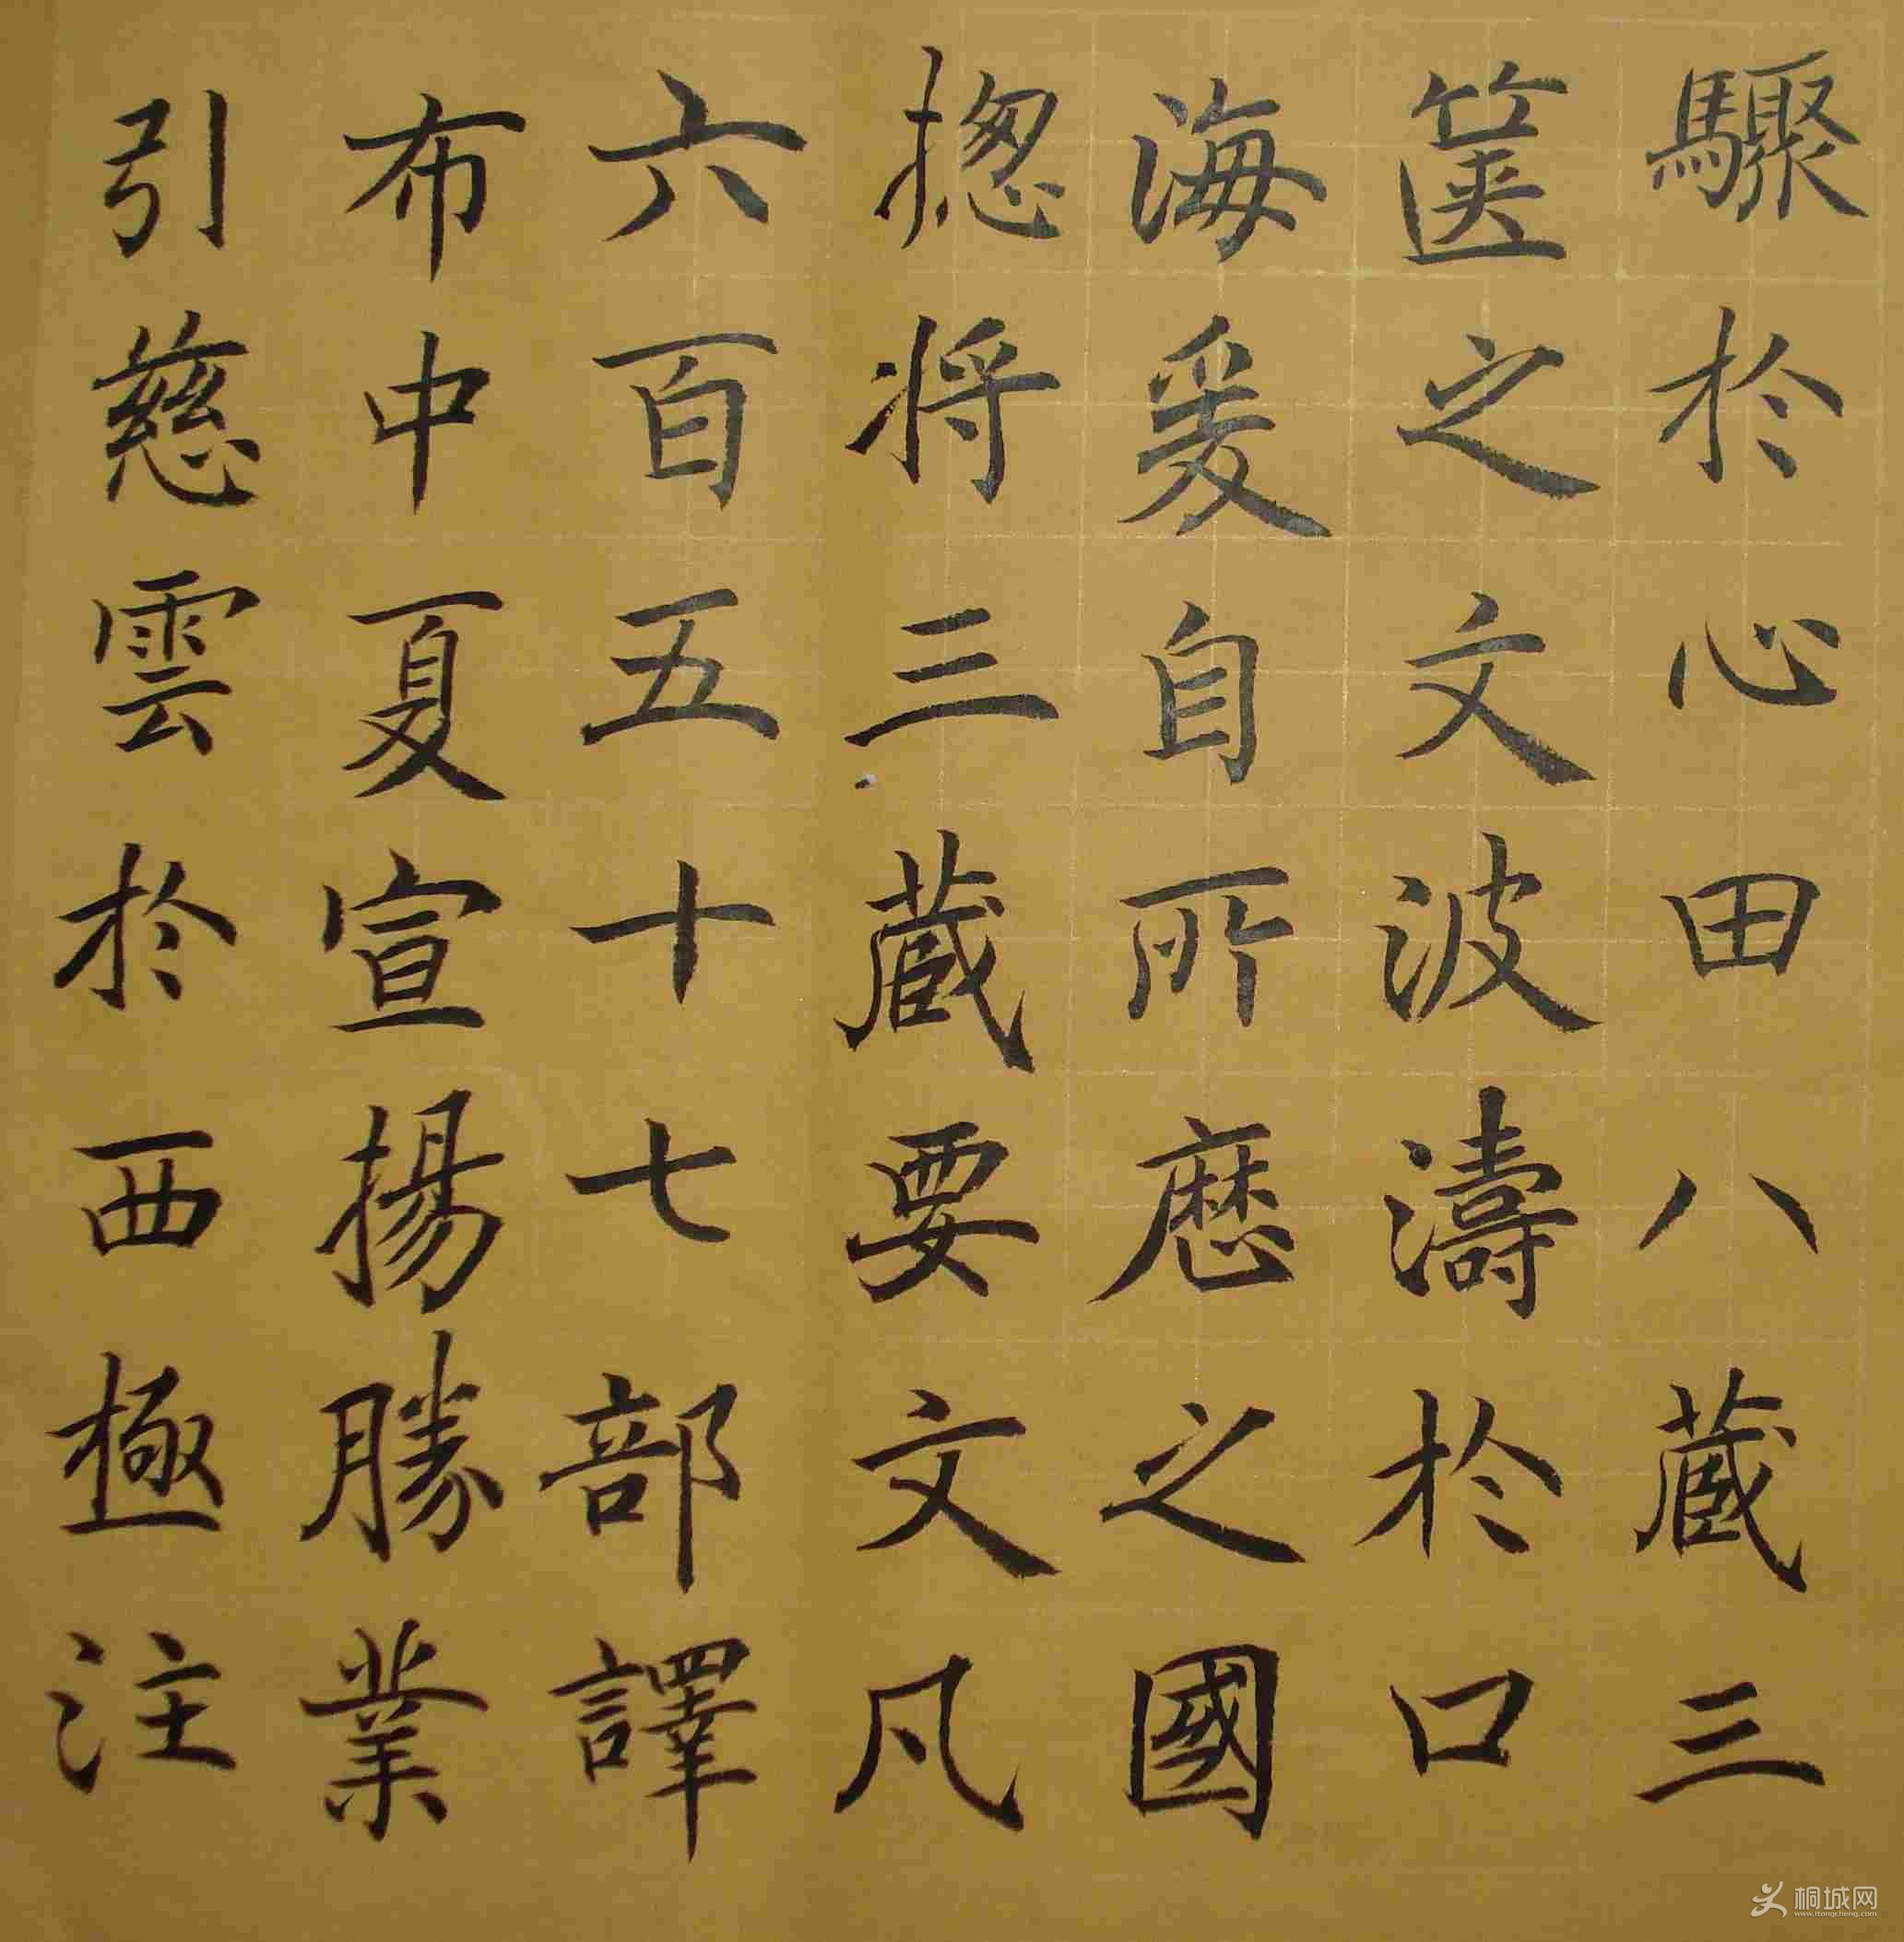 驟於心田八藏三
篋之文波濤於口
海爰自所歷之國
揔将三藏要文凡
六百五十七部譯
布中夏宣揚勝業
引慈雲於西極注
桐城网
www.itongcheng.com